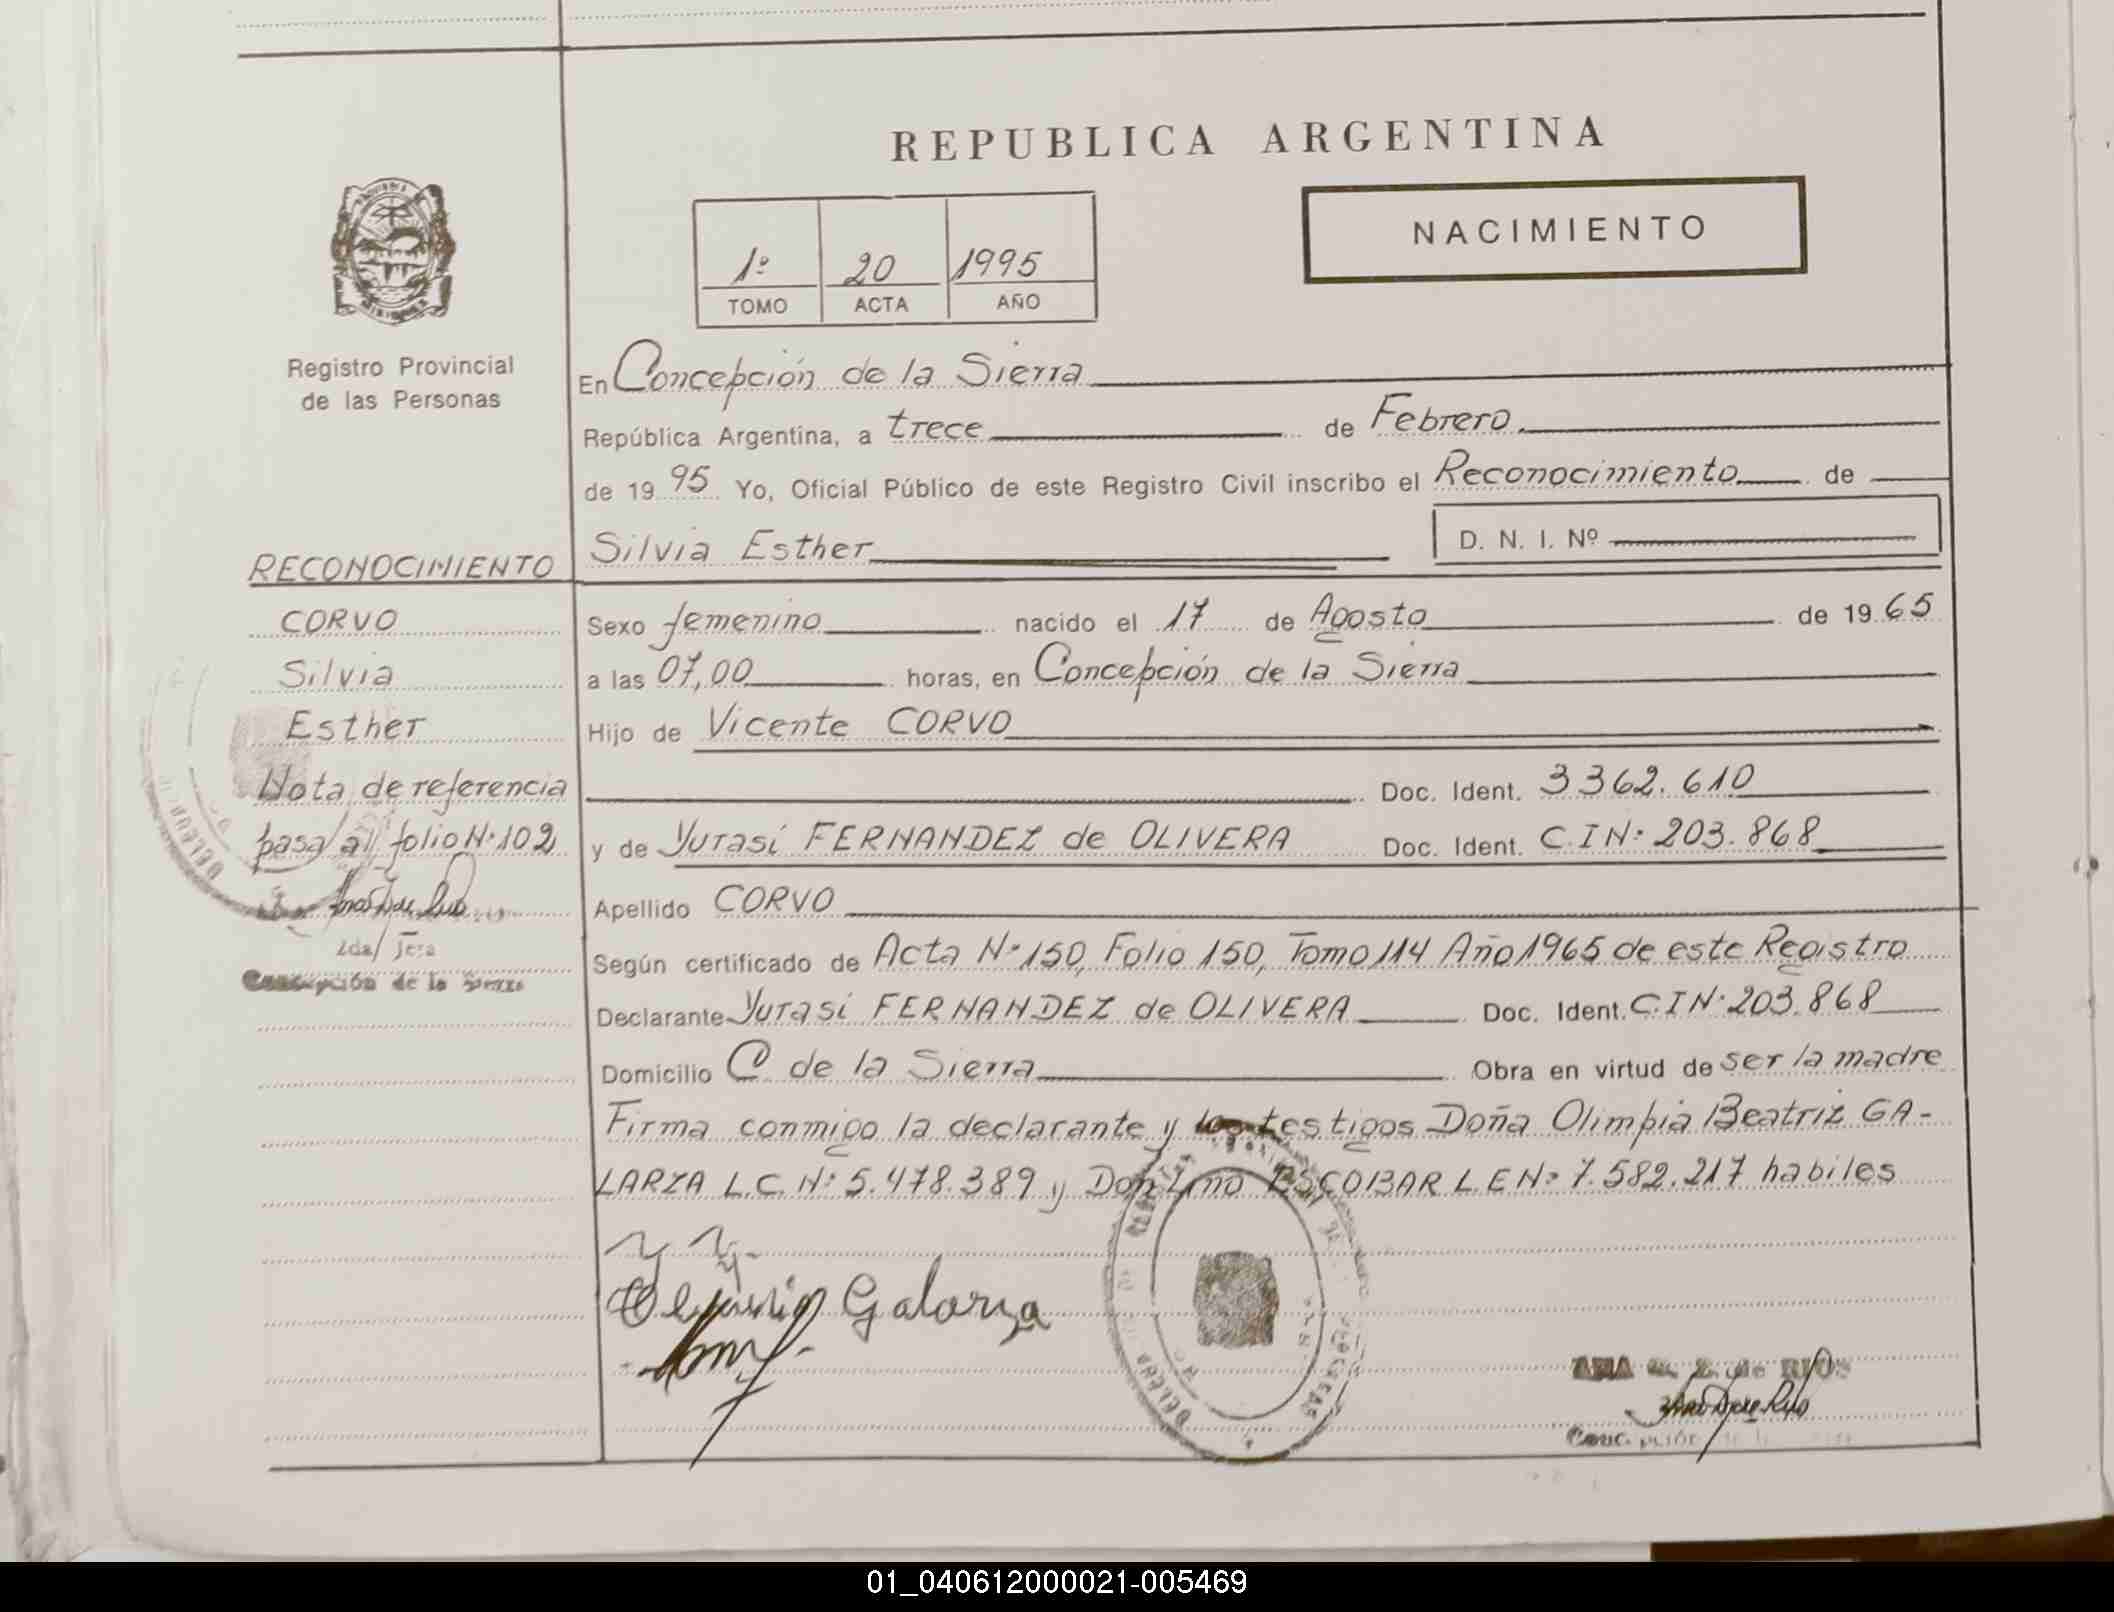 REPUBLICA ARGENTINA
NACIMIENTO
1º 20 1995
TOMO ACTA AÑO
Registro Provincial
de las Personas
En Concepción de la Sierra
República Argentina, a trece de Febrero
de 19 95 Yo, Oficial Público de este Registro Civil inscribo el Reconocimiento de
Silvia Esther D. N. I. Nº
RECONOCIMIENTO
CORVO
Silvia
Esther
Nota de referencia
pasa al folio Nº 102
2da/ Jera
Concepción de la Sierra
Sexo femenino nacido el 17 de Agosto de 19 65
a las 07,00 horas, en Concepción de la Sierra
Hijo de Vicente CORVO
Doc. Ident. 3362.610
y de Yurasí FERNANDEZ de OLIVERA Doc. Ident. C.I Nº 203.868
Apellido CORVO
Según certificado de Acta Nº 150, Folio 150, Tomo 114 Año 1965 de este Registro
Declarante Yurasí FERNANDEZ de OLIVERA Doc. Ident. C.I Nº 203.868
Domicilio C de la Sierra Obra en virtud de ser la madre
Firma conmigo la declarante y los testigos Doña Olimpia Beatriz GA-
LARZA L.C. Nº 5.478.389 y Don Lino ESCOBAR L E Nº 7.582.217 habiles
Galarza
ANA de RIOS
01_040612000021-005469